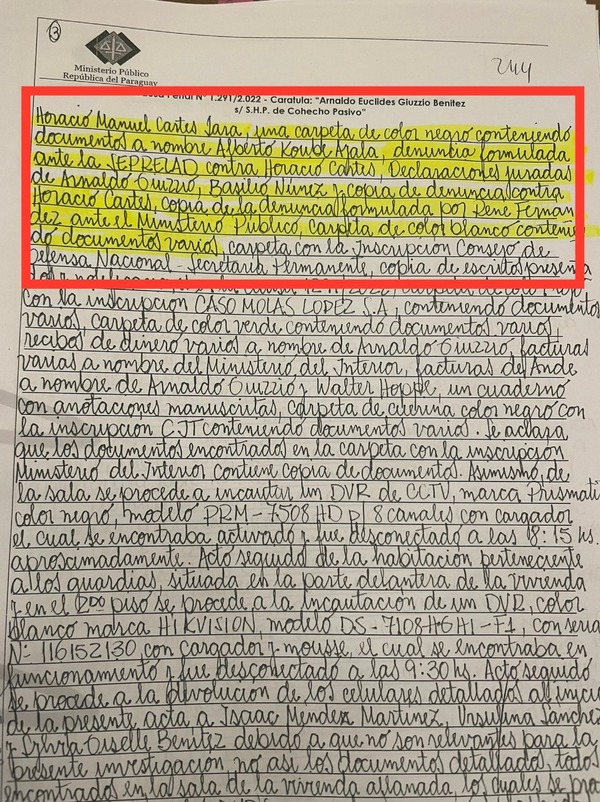 3
244
Ministerio Público
República del Paraguay
Causa Penal N° 1.291/2.022 - Caratula: "Arnaldo Euclides Giuzzio Benitez
s/ S.H.P. de Cohecho Pasivo"
Horacio Manuel Cartes Jara, una carpeta de color negro conteniendo
documentos a nombre Alberto Koube Ayala, denuncia formulada
ante la SEPRELAD contra Horacio Cartes, Declaraciones juradas
de Arnaldo Giuzzio, Basilio Núnez y copia de denuncia contra
Horacio Cartes, copia de la denuncia formulada por Rene Fernan
dez ante el Ministerio Público, carpeta de color blanco contenien
do documentos varios, carpeta con la Inscripcion Consejo de
Defensa Nacional Secretaria Permanente, copia de escritos presenta
con la inscripcion CASO MOLAS LOPEZ S.A, conteniendo documentos
varios, carpeta de color verde conteniendo documentos varios,
recibos de dinero varios a nombre de Arnaldo Giuzzio, facturas
varias a nombre del Ministerio del Interior, facturas de Ande
a nombre de Arnaldo Giuzzio y Walter Hoppe, un cuaderno
con anotaciones manuscritas, carpeta de cuerina color negro con
la inscripcion CJT conteniendo documentos varios. Se aclara
que los documentos encontrados en la carpeta con la inscripcion
Ministerio del Interior contiene copia de documentos. Asimismo, de
la sala se procede a incautar un DVR de CCTV, marca Prismati
color negro, modelo PRM-7508HD p/ 8 canales con cargador
el cual se encontraba activado y fue desconectado a las 18:15 hs.
aproximadamente. Acto seguido de la habitacion perteneciente
a los guardias, situada en la parte delantera de la vivienda
y en el 2do piso se procede a la incautacion de un DVR, color
blanco marca HIKVISION, modelo DS-7108HGHI-F1, con serie
N°: 116152130, con cargador y mousse, el cual se encontraba en
funcionamiento y fue desconectado a las 9:30 hs. Acto seguido
se procede a la devolucion de los celulares detallados al inicio
de la presente acta a Isaac Mendez Martinez, Ursulina Sanchez
y Sylvia Giselle Benitez debido a que no son relevantes para la
presente investigacion no asi los documentos detallados, todos
encontrados en la sala de la vivienda allanada, los cuales se pro